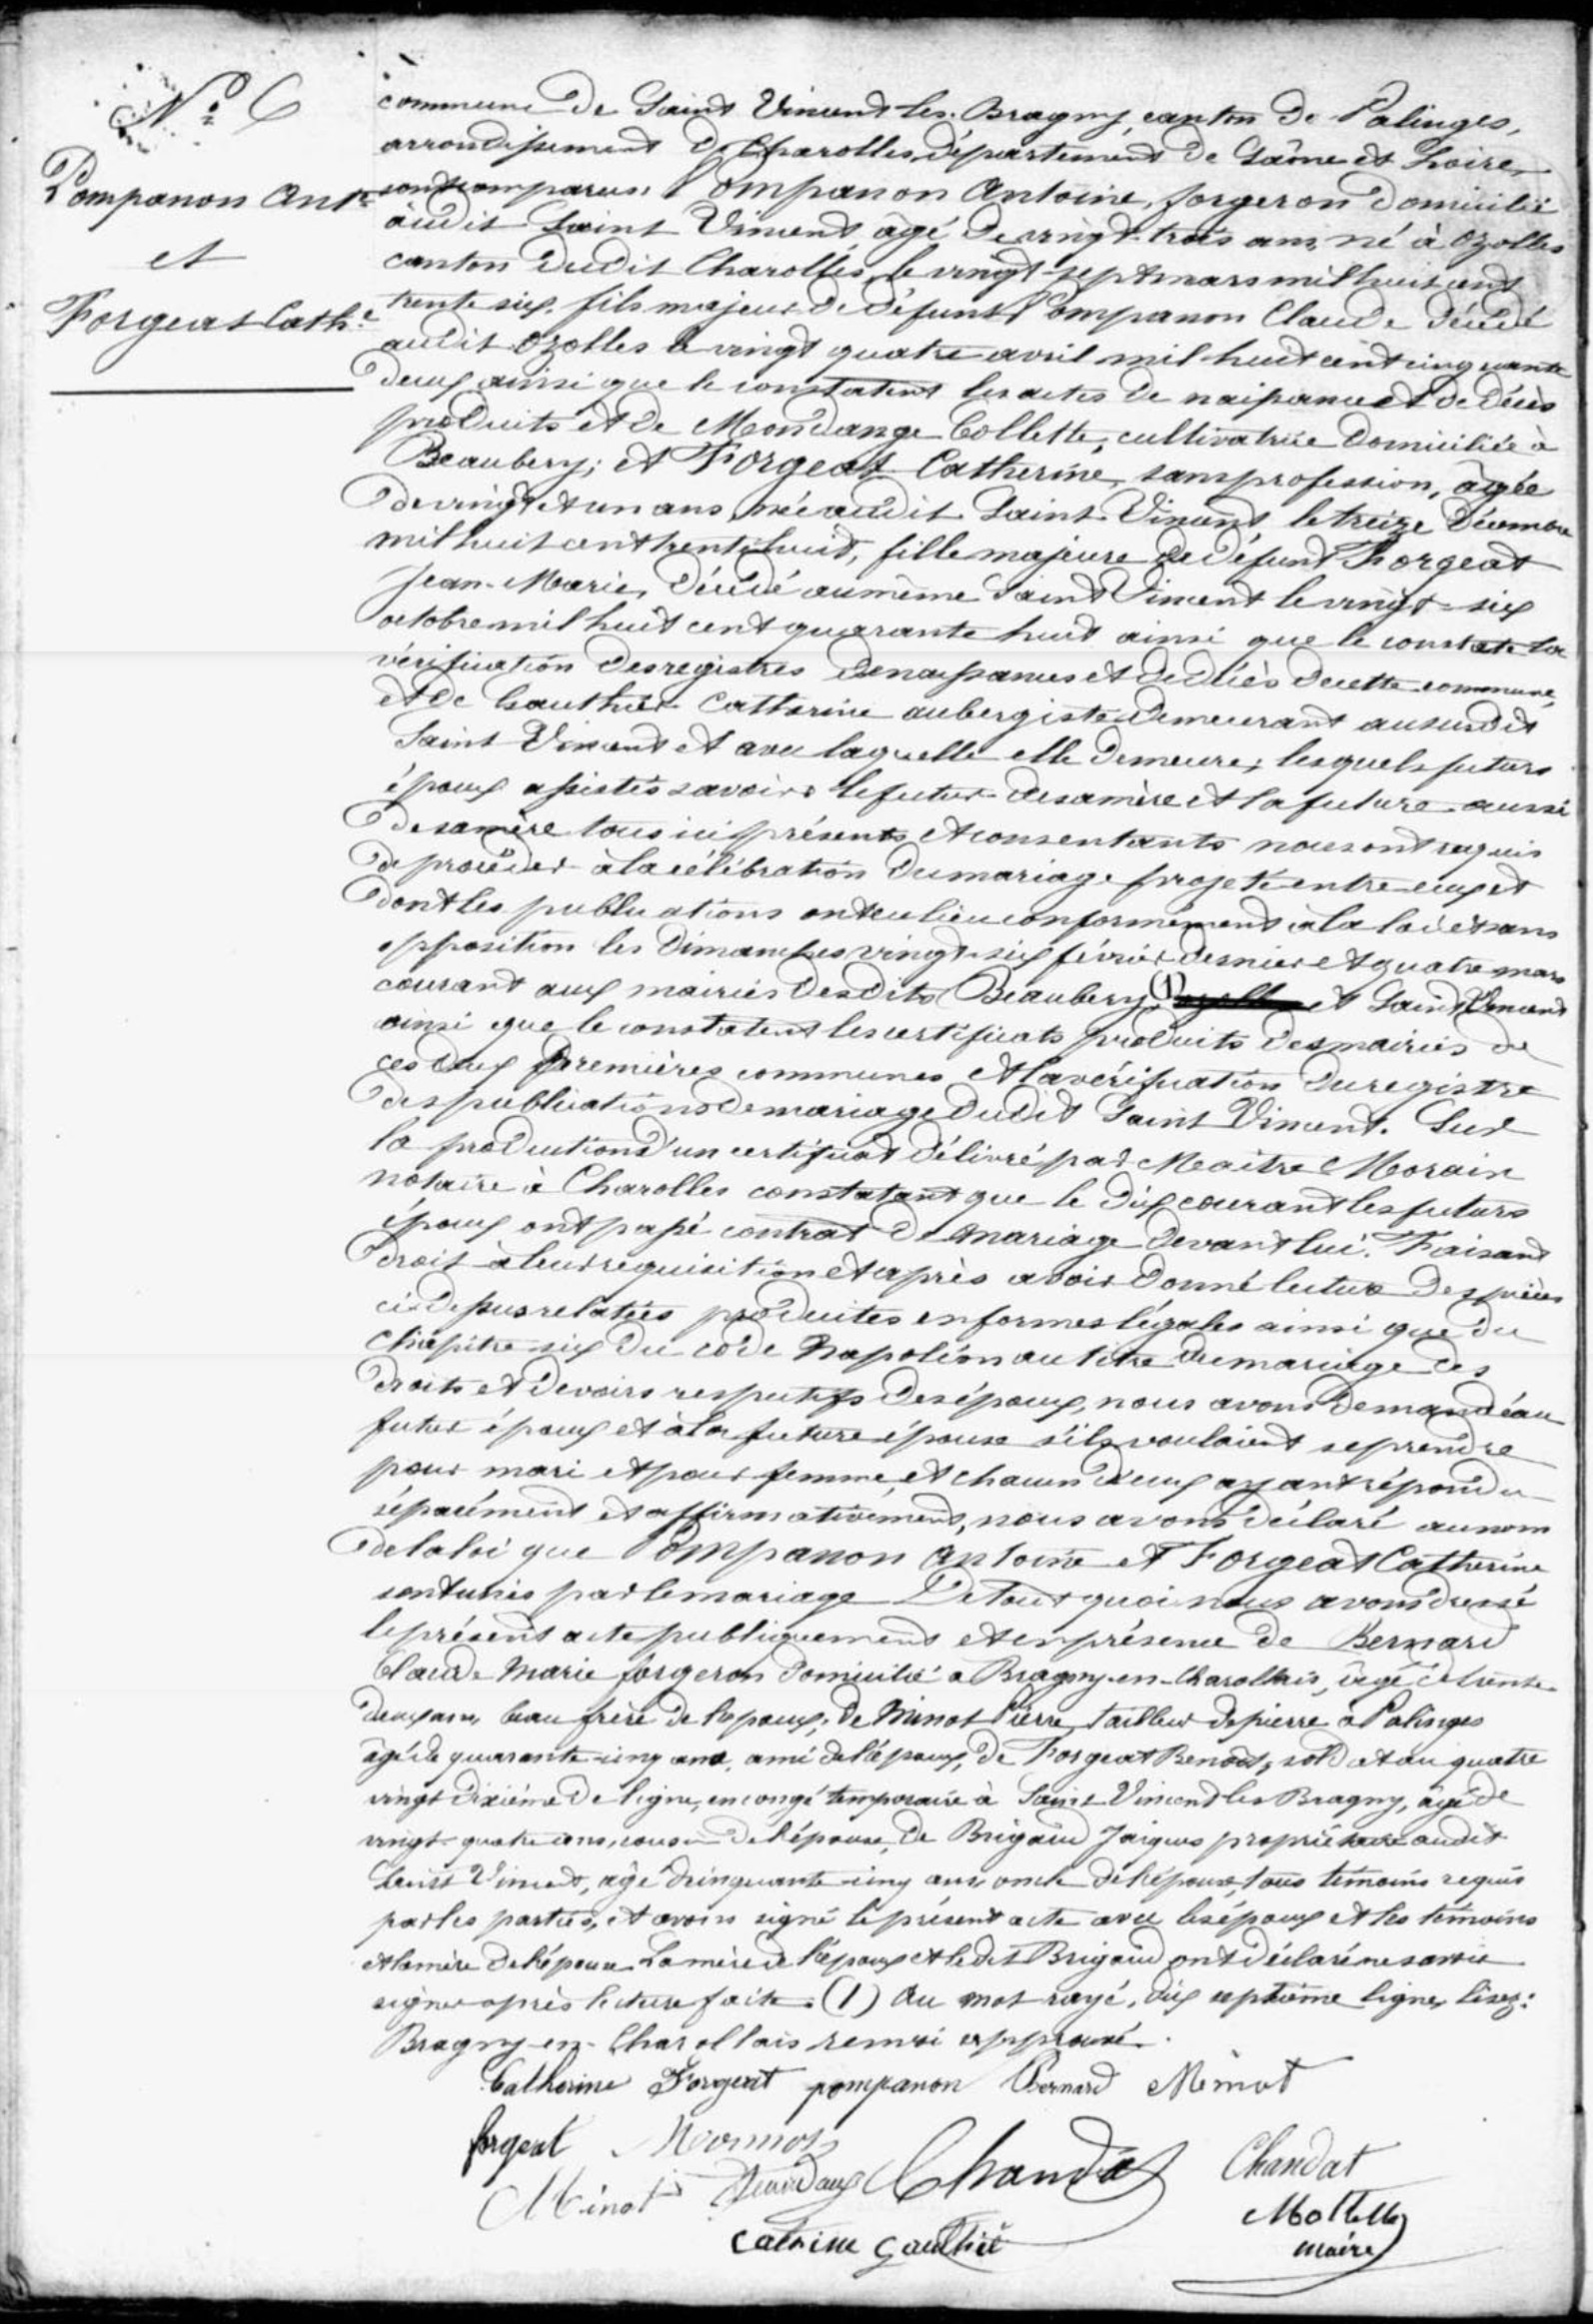 N.º 6
Pompanon Ant.ne
et
Forgeat Cath.e
commune de Saint Vincent-les-Bragny, canton de Palinges,
arrondissement de Charolles, département de Saône et Loire,
sont comparus, Pompanon Antoine, forgeron domicilié
audit Saint Vincent, âgé de vingt-trois ans, né à Ozolles
canton dudit Charolles, le vingt-sept mars mil huit cent
trente six, fils majeur de défunt Pompanon Claude décédé
audit Ozolles le vingt quatre avril mil huit cent cinquante
deux ainsi que le constatent les actes de naissance et de décès
produits et de Mondange Collette, cultivatrice domiciliée à
Beaubery; et Forgeat Catherine, sans profession, âgée
de vingt et un ans, née audit Saint Vincent, le treize décembre
mil huit cent trente huit, fille majeure de défunt Forgeat
Jean-Marie, décédé au même Saint Vincent le vingt-six
octobre mil huit cent quarante huit ainsi que le constate la
vérification des registres de naissances et de décès de cette commune,
et de Gauthier Catherine aubergiste demeurant au susdit
Saint Vincent et avec laquelle elle demeure; lesquels futurs
époux assistés savoir: le futur de sa mère et la future aussi
de sa mère tous ici présents et consentants nous ont requis
de procéder à la célébration du mariage projeté entre eux et
dont les publications ont eu lieu conformément à la loi et sans
opposition les dimanches vingt-six février dernier et quatre mars
courant aux mairies desdits Beaubery, (1) et Saint Vincent
ainsi que le constatent les certificats produits des mairies de
ces deux premières communes et la vérification du registre
des publications de mariage dudit Saint Vincent. Sur
la production d'un certificat délivré par Maître Morain
notaire à Charolles constatant que le dix courant les futurs
époux ont passé contrat de mariage devant lui. Faisant
droit à leur requisition et après avoir donné lecture des pièces
ci-dessus relatées produites en formes légales ainsi que du
chapitre six du code Napoléon au titre du mariage des
droits et devoirs respectifs des époux, nous avons demandé au
futur époux et à la future épouse s'ils voulaient se prendre
pour mari et pour femme, et chacun d'eux ayant répondu
séparément et affirmativement, nous avons déclaré au nom
de la loi que Pompanon Antoine et Forgeat Catherine
sont unis par le mariage De tout quoi nous avons dressé
le présent acte publiquement et en présence de Bernard
Claude Marie forgeron domicilié à Bragny-en-Charollais, âgé de trente
deux ans, beau frère de l'époux, de Minot Pierre, tailleur de pierre à Palinges
âgé de quarante-cinq ans, ami de l'époux, de Forgeat Benoît, soldat au quatre
vingt dixième de ligne, en congé temporaire à Saint Vincent les Bragny, âgé de
vingt-quatre ans, cousin de l'épouse, de Brigaud Jacques propriétaire audit
Saint Vincent, âgé de cinquante-cinq ans, oncle de l'épouse, tous témoins requis
par les parties, et avons signé le présent acte avec les époux et les témoins
et la mère de l'épouse. La mère de l'époux et ledit Brigaud ont déclaré ne savoir
signer après lecture faite. (1) Au mot rayé, dix septième ligne, lisez:
Bragny-en-Charollais renvoi approuvé.
Catherine Forgeat pompanon Bernard Minot
forgeat
Minot Chandat Chandat
Catrine Gauthié
maire